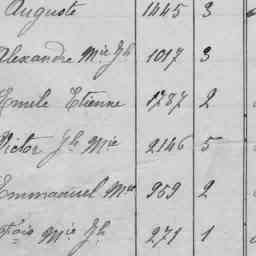 Auguste 1445 3
Alexandre Mie Jh 1017 3
Emile Etienne 1787 2
Victor Jh Mie 2146 5
Emmanuel Mie 959 2
Fois Mie Jh 271 1